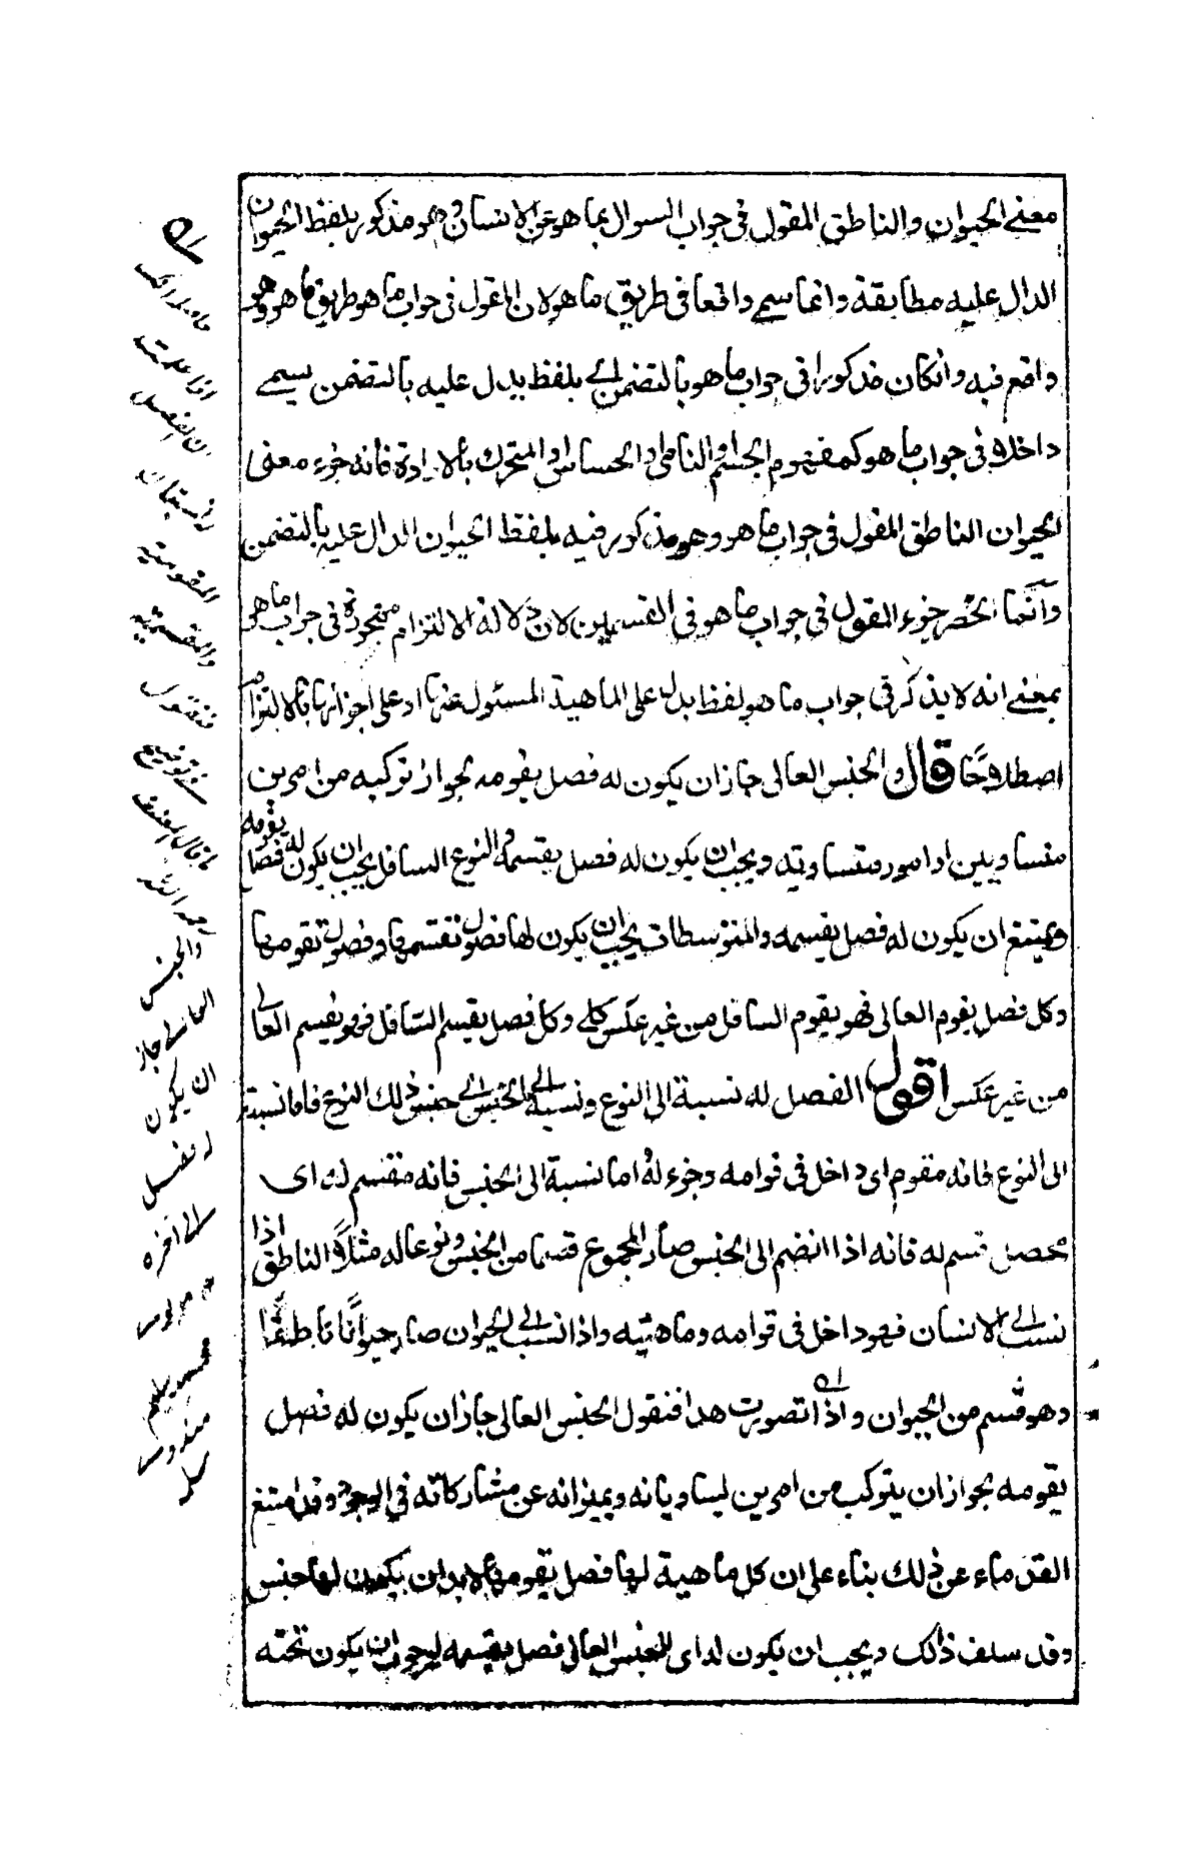 معنى الحيوان والناطق المقول فى جواب السوال بما هو عن الانسان وهو مذكور بلفظ الحيوان
الدال عليه مطابقة وانما سمى واقعا فى طريق ما هو لان المقول فى جواب ما هو طريق ما هو وهو
واقع فيه وانكان مذكورا فى جواب ما هو بالتضمن اى بلفظ يدل عليه بالتضمن يسمى
داخلا فى جواب ما هو كمفهوم الجسم او النامى او الحساس او المتحرك بالارادة فانه جزء معنى
الحيوان الناطق المقول فى جواب ما هو وهو مذكور فيه بلفظ الحيوان الدال عليه بالتضمن
وانما انحصر جزء المقول فى جواب ما هو فى القسمين لان دلالة الالتزام مهجورة فى جواب ما هو
بمعنى انه لا يذكر فى جواب ما هو لفظ يدل على الماهية المسئول عنها او على اجزائها بالالتزام
اصطلاحًا قال والجنس العالى جاز ان يكون له فصل يقومه لجواز تركيبه من امرين
متساويين او امور متساوية ويجب ان يكون له فصل يقسمه والنوع السافل يجب ان يكون له فصل يقومه
ويمتنع ان يكون له فصل يقسمه والمتوسطات يجب ان يكون لها فصول تقسمها وفصول تقومها
وكل فصل يقوم العالى فهو يقوم السافل من غير عكس كلى وكل فصل يقسم السافل فهو يقسم العالى
من غير عكس اقول الفصل له نسبة الى النوع ونسبة الى الجنس اى جنس ذلك النوع فاما نسبته
الى النوع فانه مقوم اى داخل فى قوامه وجزء له اما نسبة الى الجنس فانه مقسم له اى
محصل قسم له فانه اذا انضم الى الجنس صار المجموع قسما من الجنس ونوعا له مثلاً الناطق اذا
نسب الى الانسان فهو داخل فى قوامه وماهيته واذا نسب الى الحيوان صار حيوانًا ناطقًا
وهو قسم من الحيوان واذا تصورت هذا فنقول الجنس العالى جاز ان يكون له فصل
يقومه لجواز ان يتركب من امرين يساويانه ويميزانه عن مشاركاته فى الوجود وقد امتنع
القدماء عن ذلك بناء على ان كل ماهية لها فصل يقومها لابد ان يكون لها جنس
وقد سلف ذالك ويجب ان يكون له اى للجنس العالى فصل يقسمه لوجوب ان يكون تحته
اذا علمت
ان الفصل
المقومة
والمقسمة
فنقول
قال المصنف
رحمه الله
والجنس
العالى جاز
ان يكون
له فصل
الى اخره